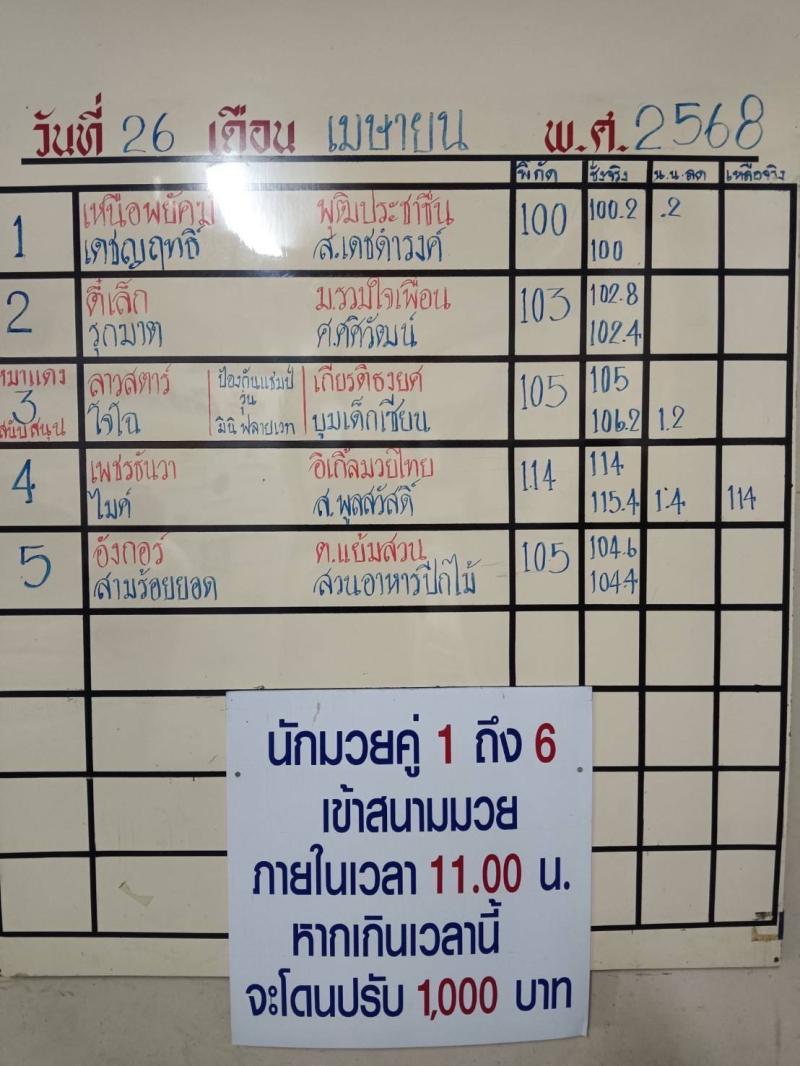 วันที่ 26 เดือน เมษายน พ.ศ. 2568
พิกัด ชั่งจริง น.น.ลด เหลือจริง
1 เหนือพยัคฆ์ พุฒิประชาชื่น 100 100.2 .2
เดชญฤทธิ์ ส.เดชดำรงค์ 100
2 ตี๋เล็ก ม.รวมใจเพื่อน 103 102.8
รุกฆาต ศ.ศศิวัฒน์ 102.4
หมาแดง ลาวสตาร์ ป้องกันแชมป์ เกียรติธงยศ 105 105
3 รุ่น
สนับสนุน ใจโฉ มินิ ฟลายเวท บุมเด็กเซียน 106.2 1.2
4 เพชรธันวา อิเกิ้ลมวยไทย 114 114
ไมค์ ส.พูลสวัสดิ์ 115.4 1.4 114
5 อังกอร์ ต.แย้มสวน 105 104.6
สามร้อยยอด สวนอาหารปีกไม้ 104.4
นักมวยคู่ 1 ถึง 6
เข้าสนามมวย
ภายในเวลา 11.00 น.
หากเกินเวลานี้
จะโดนปรับ 1,000 บาท